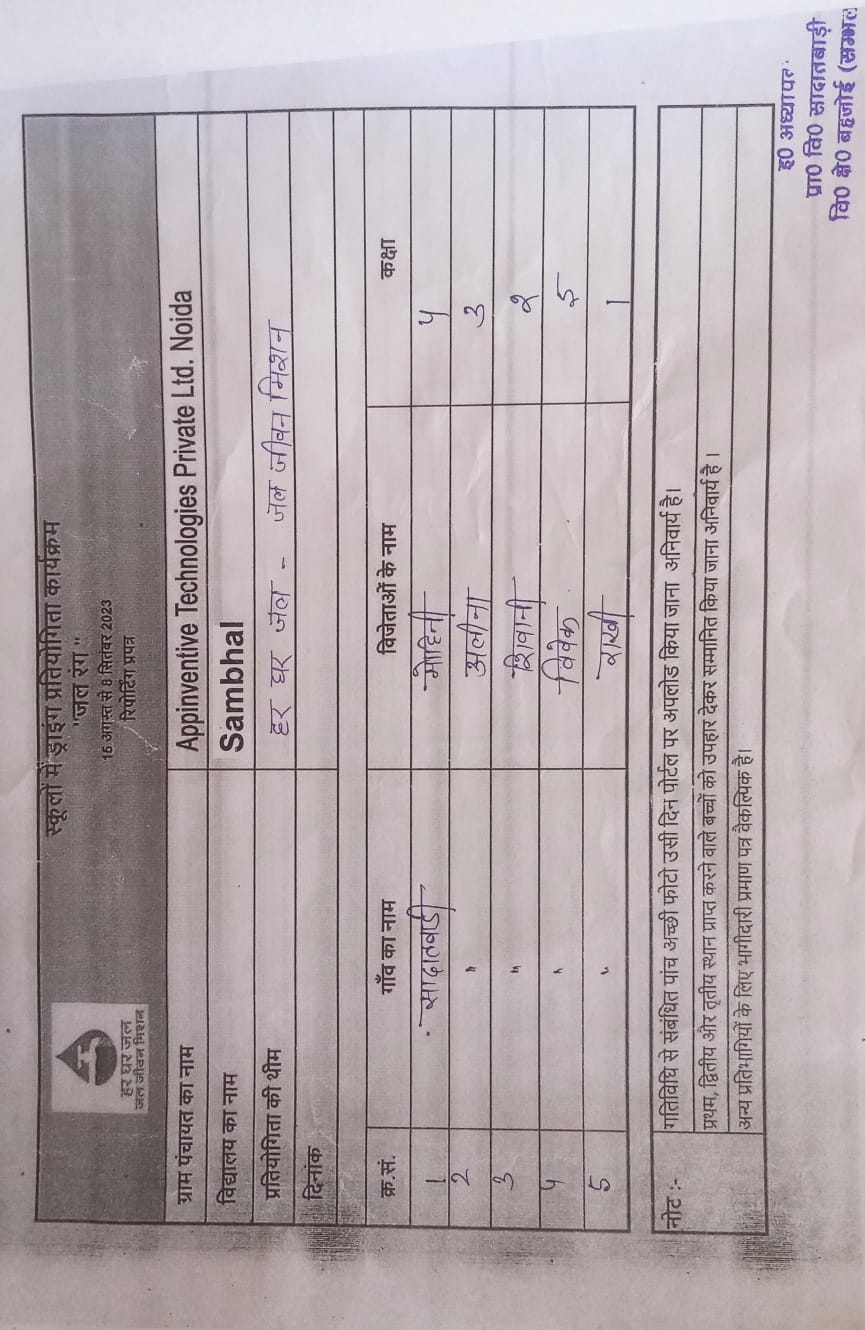 स्कूलों में ड्राइंग प्रतियोगिता कार्यक्रम
"जल रंग"
16 अगस्त से 8 सितंबर 2023
रिपोर्टिंग प्रपत्र
हर घर जल
जल जीवन मिशन
ग्राम पंचायत का नाम Appinventive Technologies Private Ltd. Noida
विद्यालय का नाम Sambhal
प्रतियोगिता की थीम हर घर जल - जल जीवन मिशन
दिनांक
क्र.सं. गाँव का नाम विजेताओं के नाम कक्षा
1 सादातबाडी मोहिनी ५
2 " अलीना ३
3 " शिवानी २
५ " विवेक ५
5 " राखी 1
नोट :- गतिविधि से संबंधित पांच अच्छी फोटो उसी दिन पोर्टल पर अपलोड किया जाना अनिवार्य है।
प्रथम, द्वितीय और तृतीय स्थान प्राप्त करने वाले बच्चों को उपहार देकर सम्मानित किया जाना अनिवार्य है।
अन्य प्रतिभागियों के लिए भागीदारी प्रमाण पत्र वैकल्पिक है।
इ0 अध्यापक
प्रा0 वि0 सादातबाड़ी
वि0 क्षे0 बहजोई (सम्भल